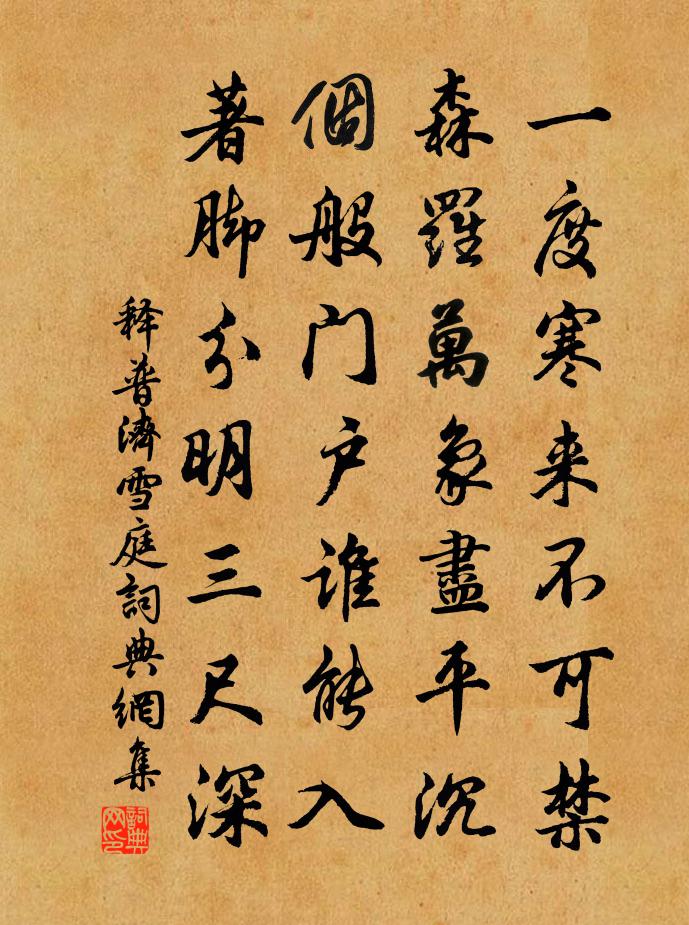 一度寒来不可禁
森羅萬象盡平沉
個般门户谁能入
著脚分明三尺深
释普濟雪庭詞典網集
詞典网印